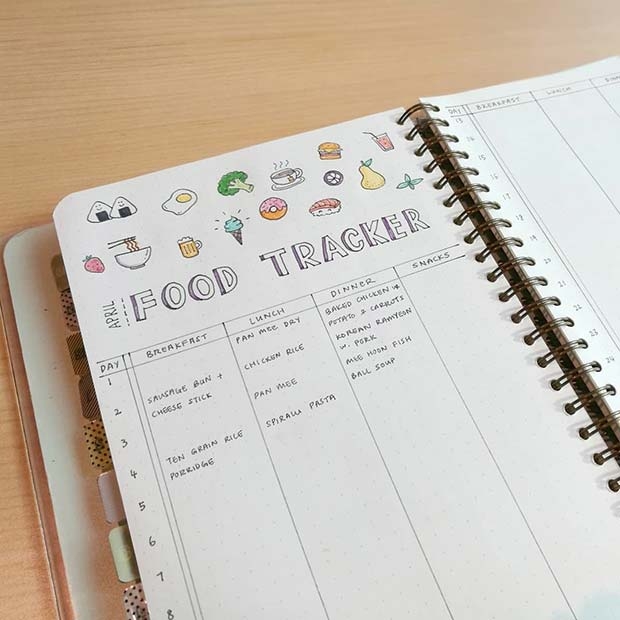 APRIL
FOOD TRACKER
DAY BREAKFAST LUNCH DINNER SNACKS
1 PAN MEE DRY BAKED CHICKEN W
POTATO & CARROTS
2 SAUSAGE BUN + CHICKEN RICE KOREAN RAMYEON
CHEESE STICK W. PORK
3 PAN MEE MEE HOON FISH
BALL SOUP
4 TEN GRAIN RICE SPIRALLI PASTA
PORRIDGE
5
6
7
8
DAY BREAKFAST LUNCH
13
14
15
16
17
18
19
20
21
22
23
24